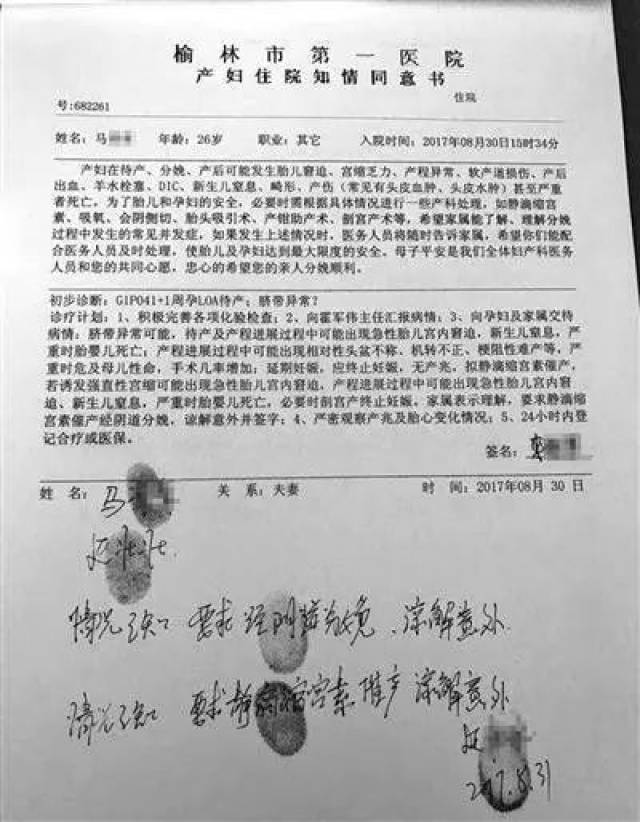 榆林市第一医院
产妇住院知情同意书
住院
号:682261
姓名：马 年龄：26岁 职业：其它 入院时间：2017年08月30日15时34分
产妇在待产、分娩、产后可能发生胎儿窘迫、宫缩乏力、产程异常、软产道损伤、产后
出血、羊水栓塞、DIC、新生儿窒息、畸形、产伤（常见有头皮血肿、头皮水肿）甚至严重
者死亡，为了胎儿和孕妇的安全，必要时需根据具体情况进行一些产科处理，如静滴缩宫
素、吸氧、会阴侧切、胎头吸引术、产钳助产术、剖宫产术等，希望家属能了解、理解分娩
过程中发生的常见并发症，如果发生上述情况时，医务人员将随时告诉家属，希望你们能配
合医务人员及时处理，使胎儿及孕妇达到最大限度的安全。母子平安是我们全体妇产科医务
人员和您的共同心愿，忠心的希望您的亲人分娩顺利。
初步诊断：G1P041+1周孕LOA待产；脐带异常？
诊疗计划：1、积极完善各项化验检查；2、向霍军伟主任汇报病情；3、向孕妇及家属交待
病情：脐带异常可能，待产及产程进展过程中可能出现急性胎儿宫内窘迫，新生儿窒息，严
重时胎婴儿死亡；产程进展过程中可能出现相对性头盆不称、机转不正、梗阻性难产等，严
重时危及母儿性命，手术几率增加；延期妊娠，应终止妊娠，无产兆，拟静滴缩宫素催产，
若诱发强直性宫缩可能出现急性胎儿宫内窘迫，产程进展过程中可能出现急性胎儿宫内窘
迫、新生儿窒息，严重时胎婴儿死亡，必要时剖宫产终止妊娠，家属表示理解，要求静滴缩
宫素催产经阴道分娩，谅解意外并签字；4、严密观察产兆及胎心变化情况；5、24小时内登
记合疗或医保。
签名：
姓 名：马 关 系：夫妻 时 间：2017年08月 30 日
延壮壮.
情况已知 要求经阴道分娩 谅解意外.
情况已知 要求静滴缩宫素催产 谅解意外
延
2017.8.31